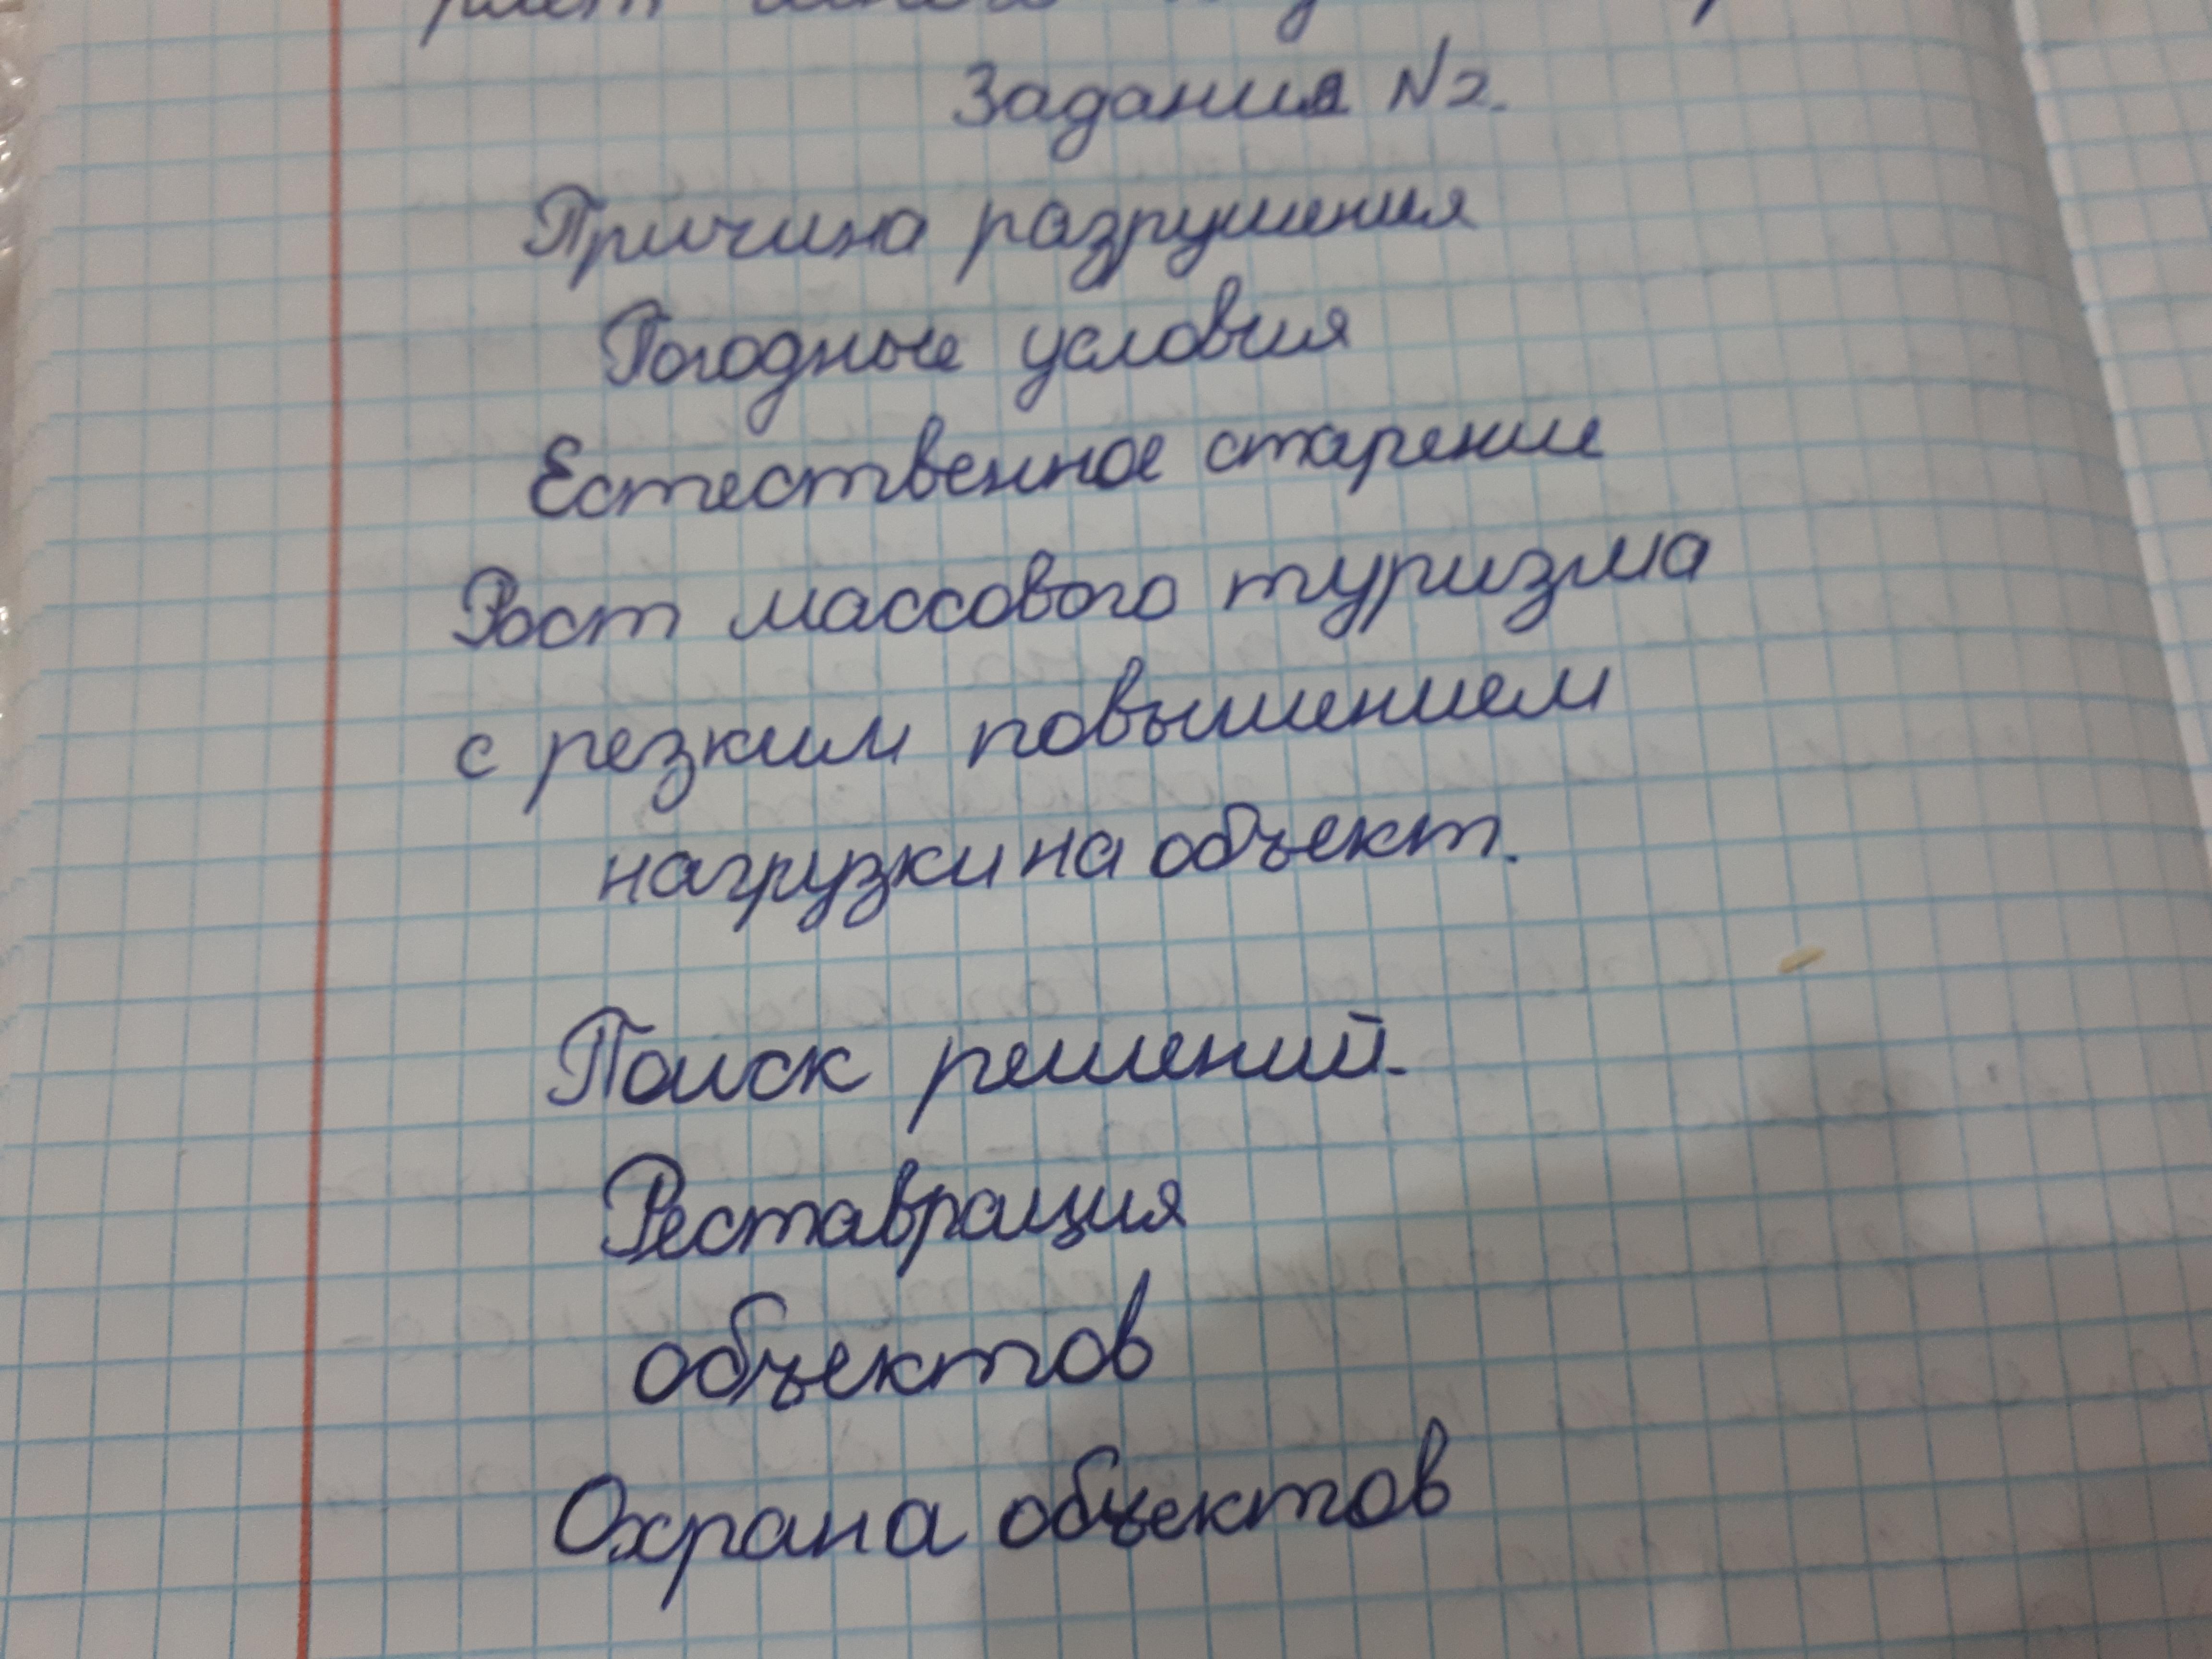 Задания №2.
Причина разрушения
Погодные условия
Естественное старение
Рост массового туризма
с резким повышением
нагрузки на объект.
Поиск решений.
Реставрация
объектов
Охрана объектов